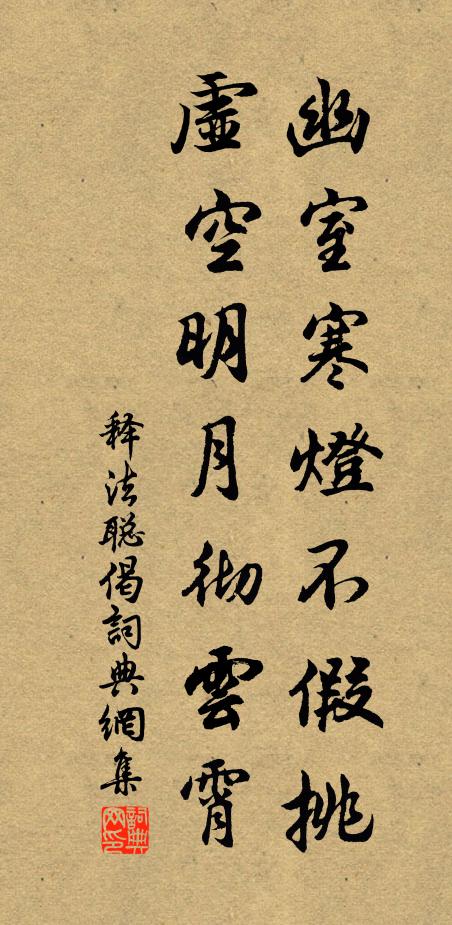 幽室寒燈不假挑
虛空明月彻雲霄
释法聪偈詞典網集
詞典
网印